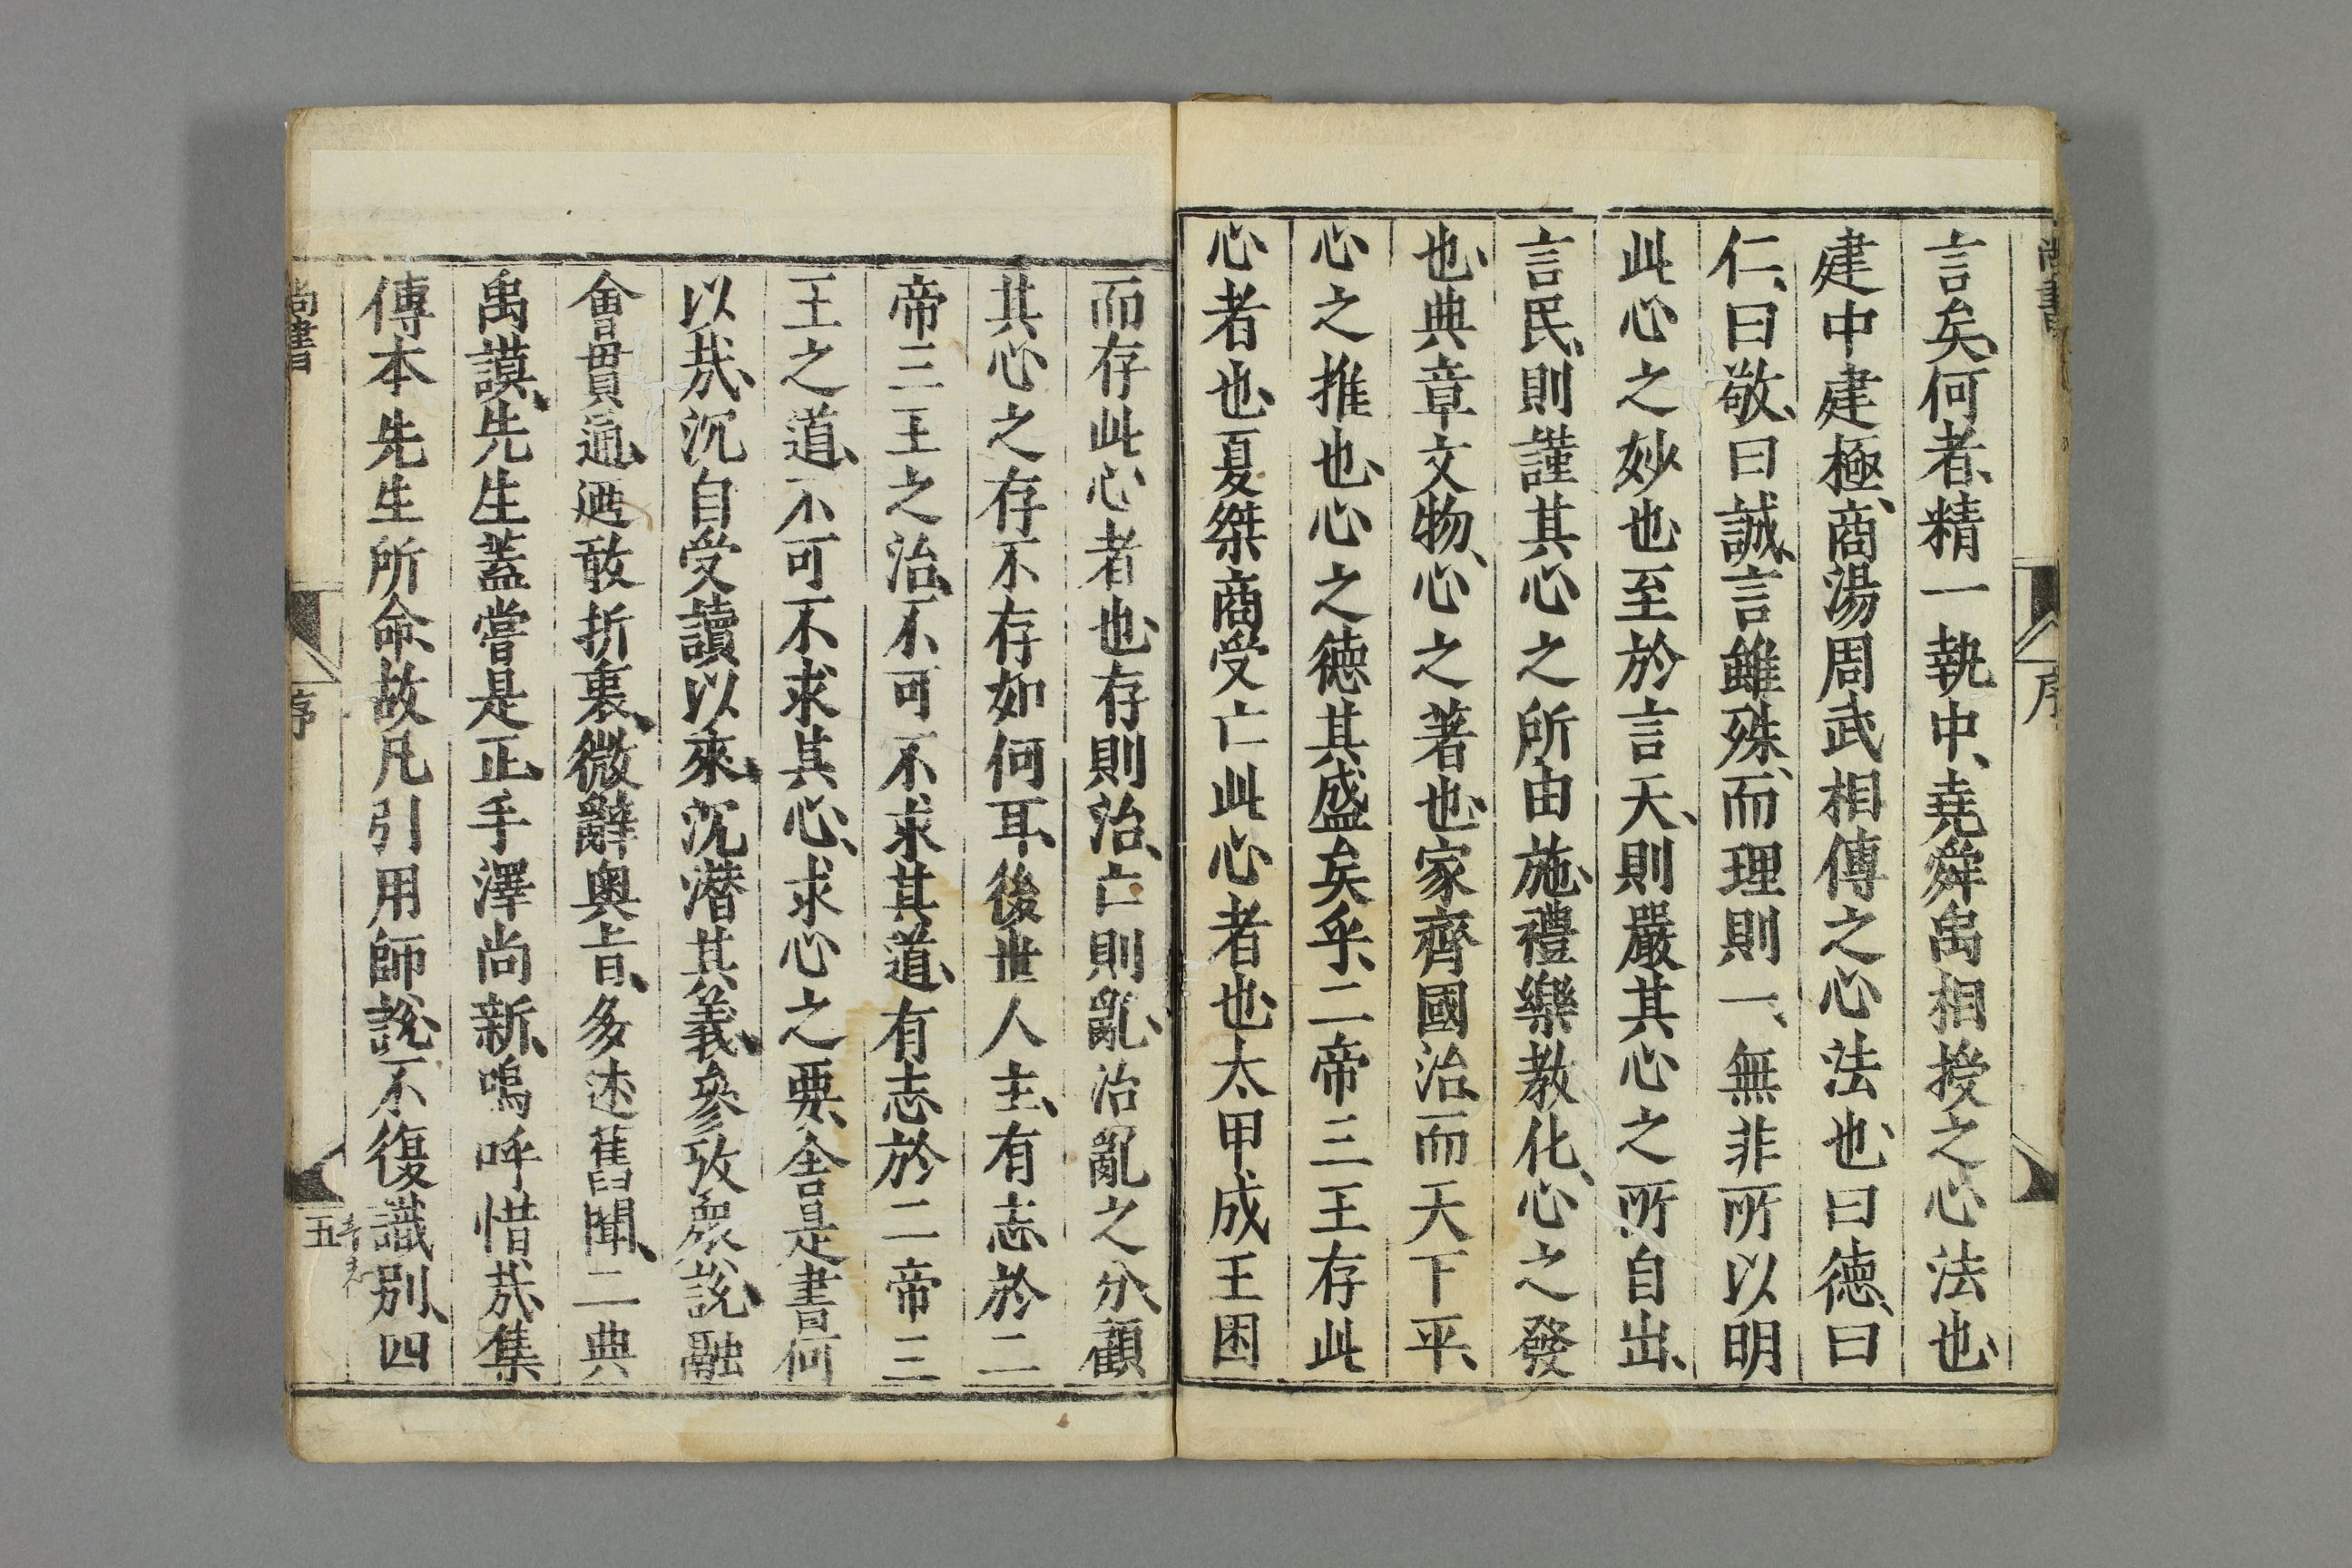 尚書
序
言矣何者精一執中堯舜禹相授之心法也
建中建極商湯周武相傳之心法也曰德曰
仁曰敬曰誠言雖殊而理則一無非所以明
此心之妙也至於言天則嚴其心之所自出
言民則謹其心之所由施禮樂教化心之發
也典章文物心之著也家齊國治而天下平
心之推也心之德其盛矣乎二帝三王存此
心者也夏桀商受亡此心者也太甲成王困
而存此心者也存則治亡則亂治亂之分顧
其心之存不存如何耳後世人主有志於二
帝三王之治不可不求其道有志於二帝三
王之道不可不求其心求心之要舍是書何
以哉沉自受讀以來沉潛其義參攷衆說融
會貫通迺敢折衷微辭奧旨多述舊聞二典
禹謨先生蓋嘗是正手澤尚新嗚呼惜哉集
傳本先生所命故凡引用師說不復識別四
尚書
序
五